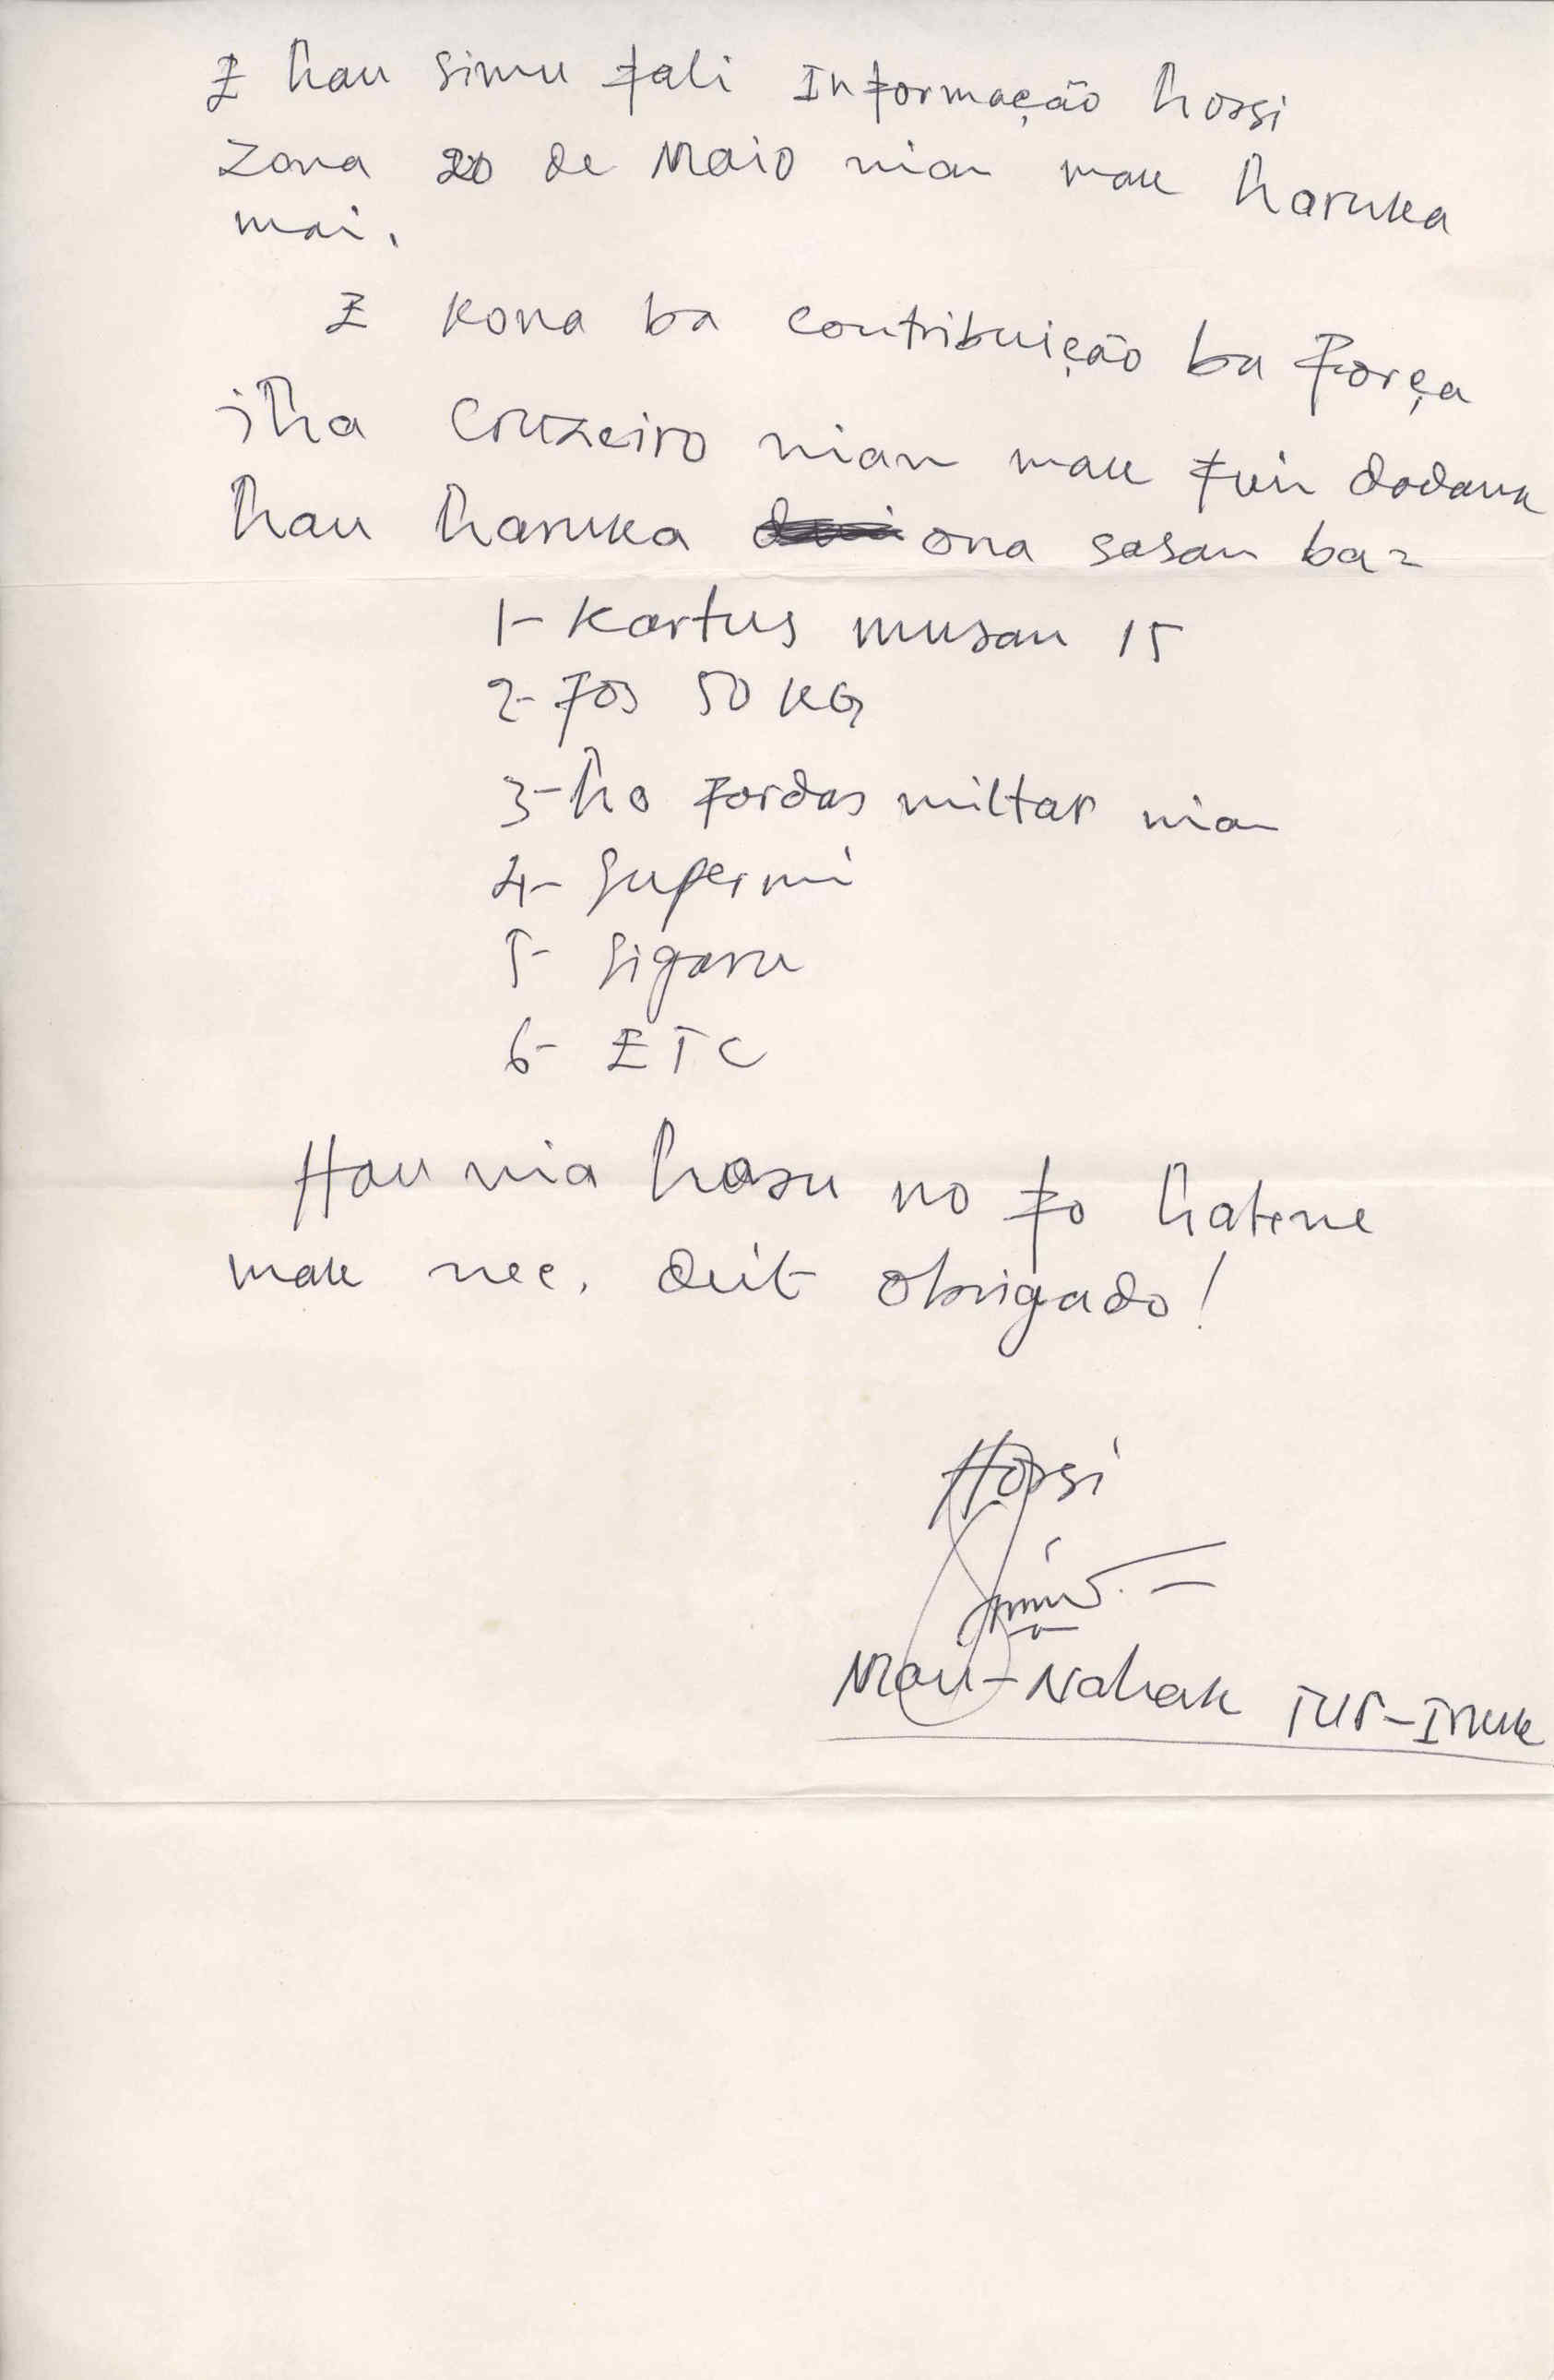 E hau simu fali Informação hossi
Zona 20 de Maio nian mak haruka
mai.
E kona ba contribuição ba Força
iha Cruzeiro nian mak fuin dadauk
hau haruka ona sasan ba=
1- Kartus musan 15
2- Fos 50 KG
3- ho fardas miltar nian
4- Supermi
5- Sigaru
6- ETC
Hau nia hasu no fo hatene
mak nee. deit obrigado!
Hossi
Mau-Nahak TUR-Iruk